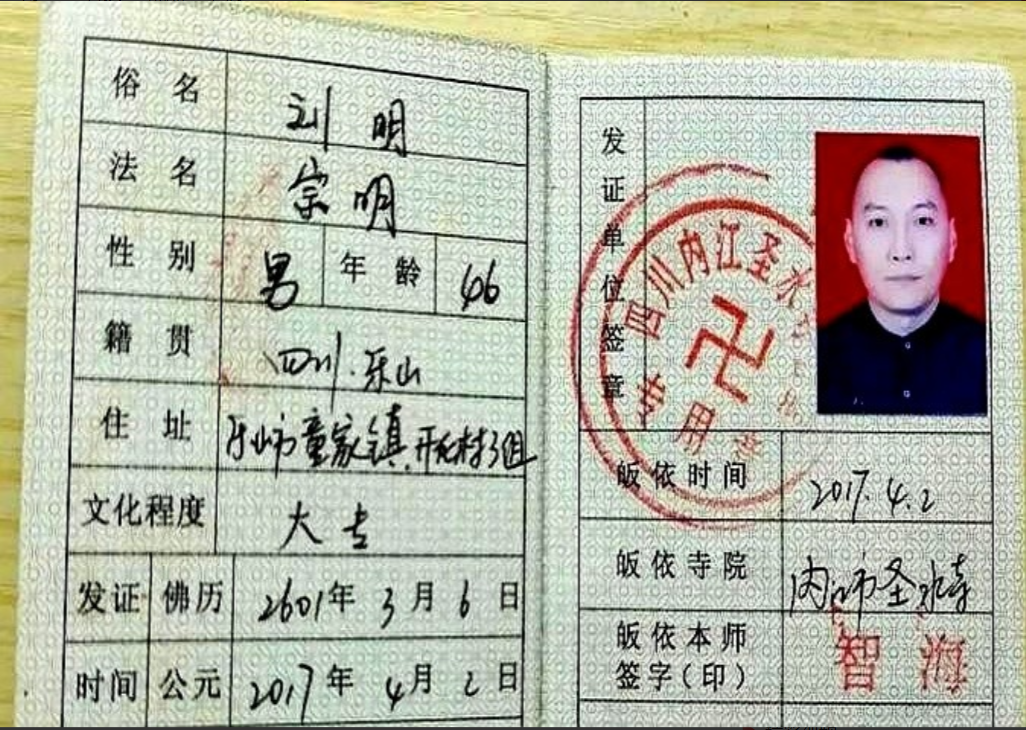 俗名 刘明
法名 宗明
性别 男 年龄 46
籍贯 四川.乐山
住址 乐山市童家镇.开化村3组
文化程度 大专
发证时间 佛历 2601年3月6日
公元 2017年4月2日
发证单位签章
四川内江圣水
专用章
皈依时间 2017.4.2
皈依寺院 内江市圣水寺
皈依本师签字(印) 智海